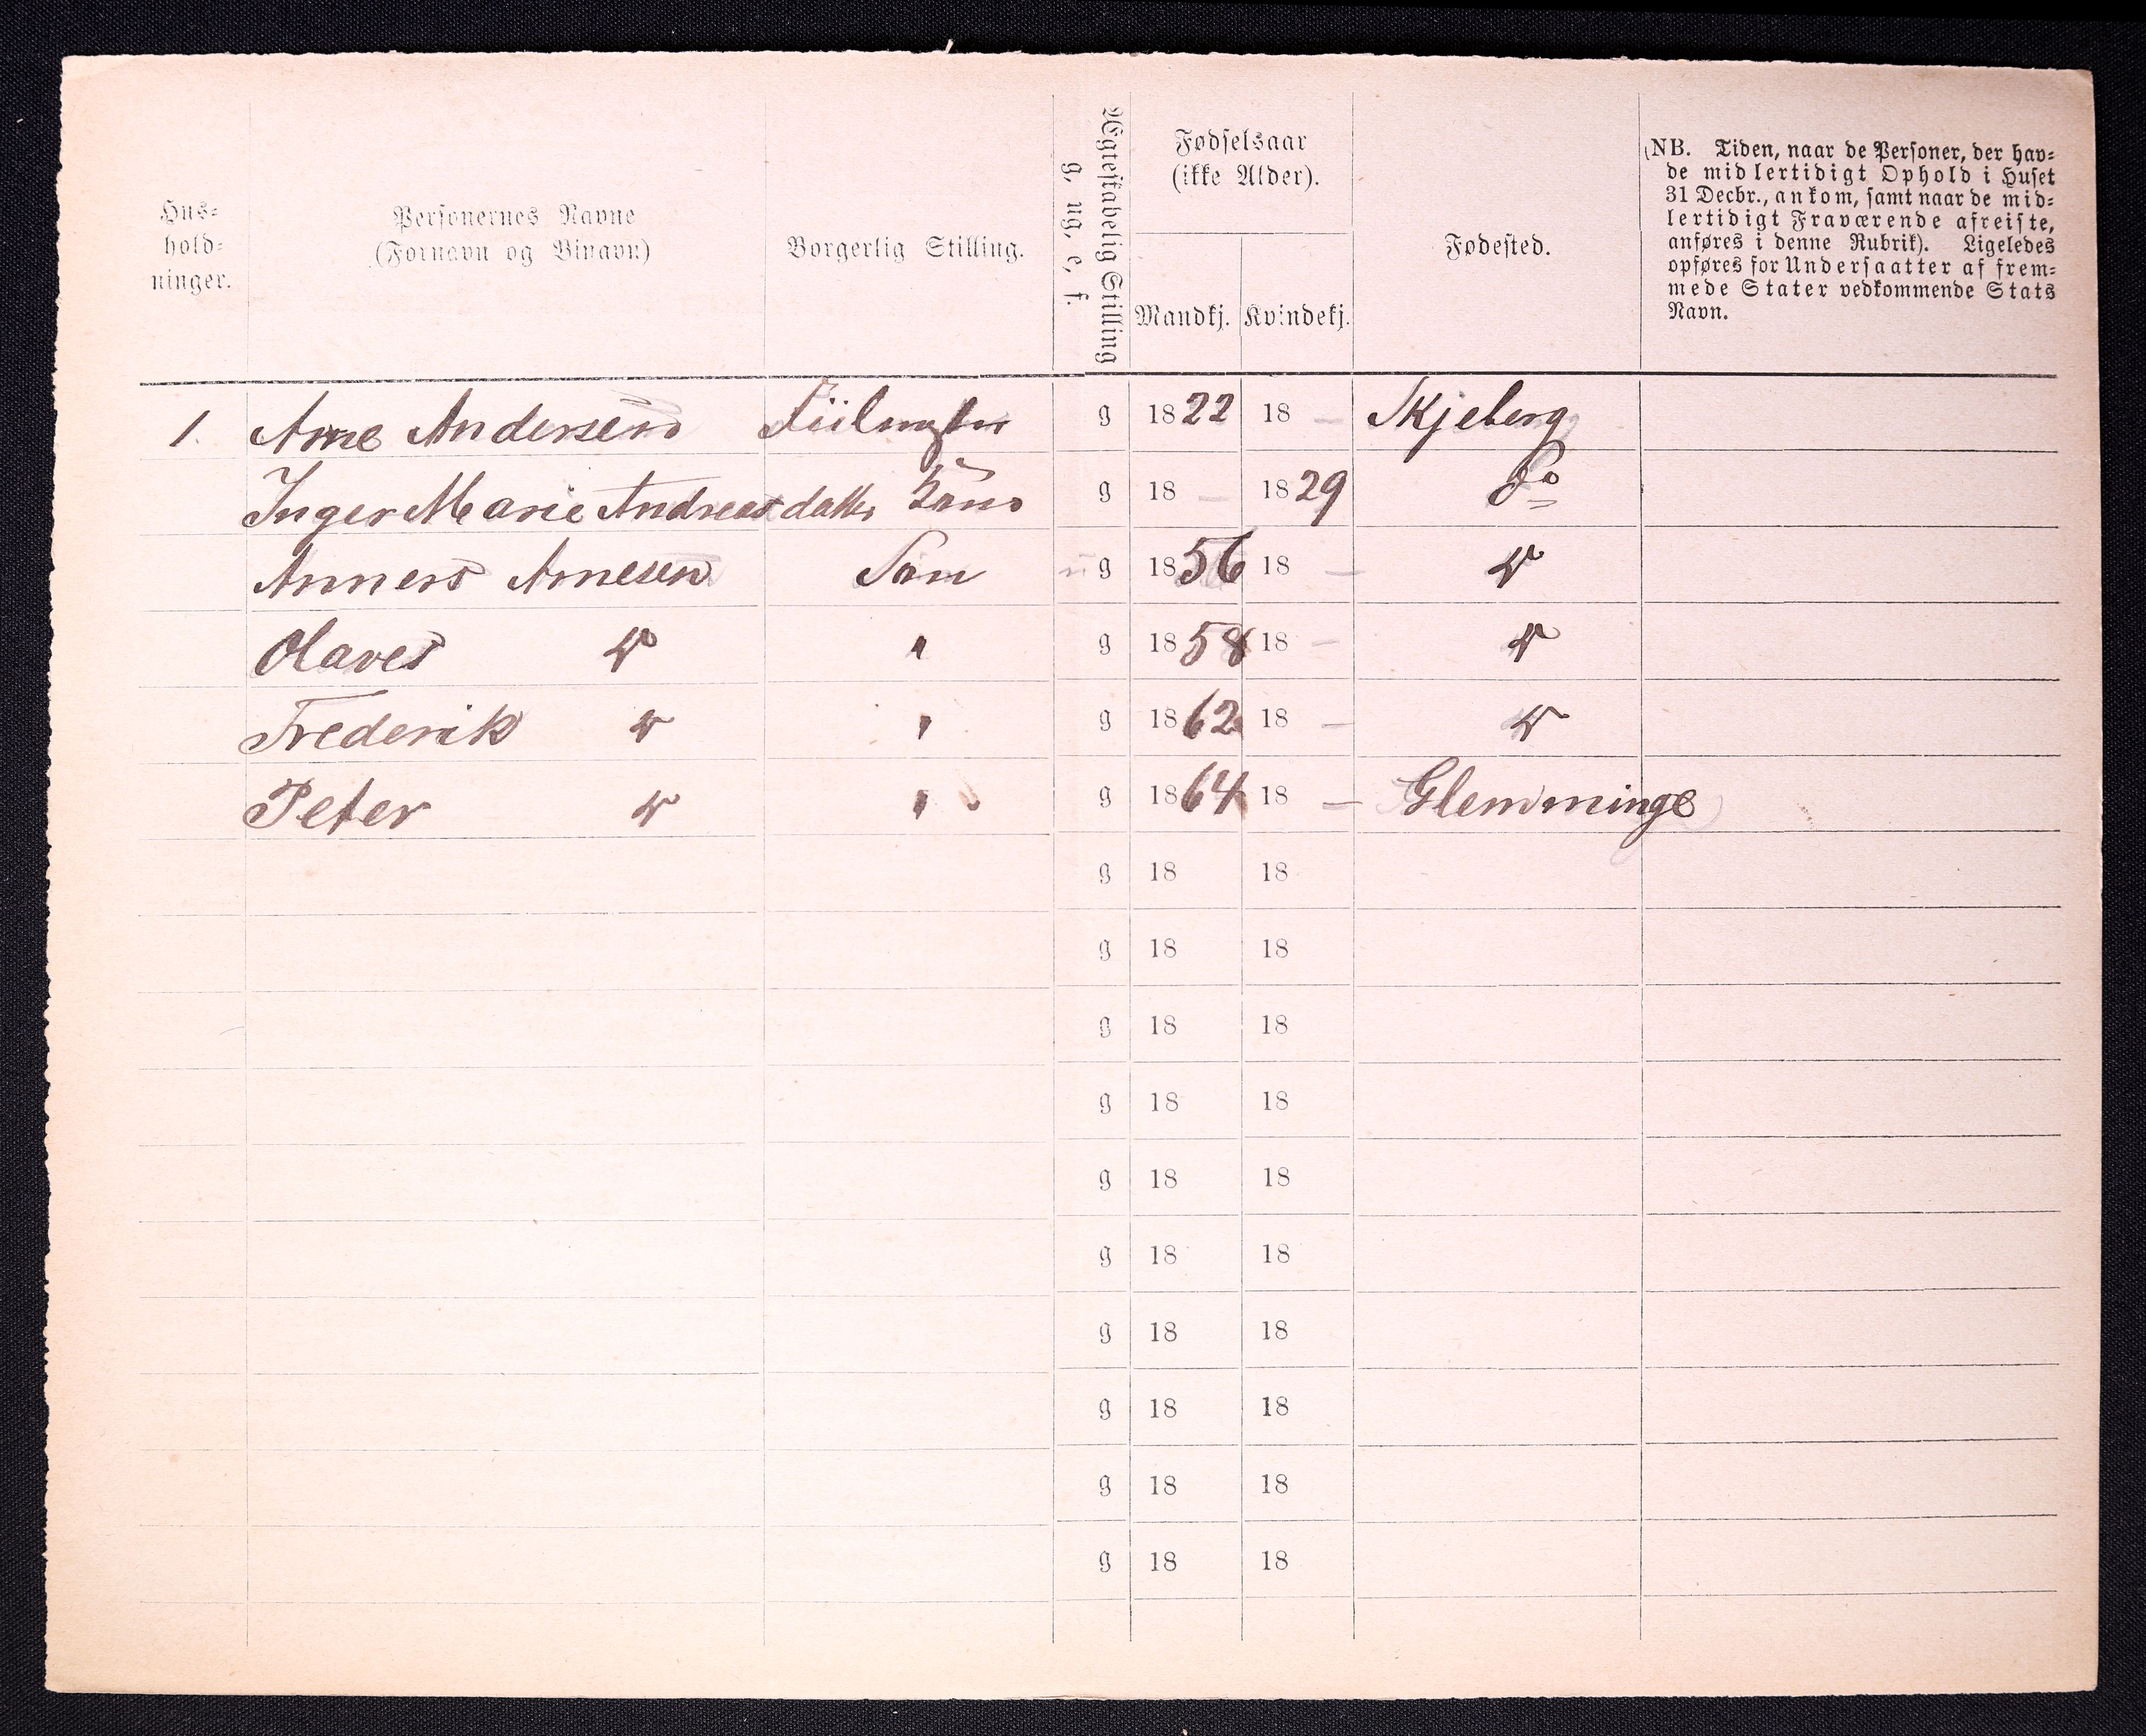 Hus-
hold-
ninger.
Personernes Navne
(Fornavn og Binavn)
Borgerlig Stilling.
Ægteskabelig Stilling
g, ug, e, f.
Fødselsaar
(ikke Alder).
Mandkj. Kvindekj.
Fødested.
(NB. Tiden, naar de Personer, der hav-
de midlertidigt Ophold i Huset
31 Decbr., ankom, samt naar de mid-
lertidigt Fraværende afreiste,
anføres i denne Rubrik). Ligeledes
opføres for Undersaatter af frem-
mede Stater vedkommende Stats
Navn.
1. Arne Andersen g 1822 18 — Skjeberg
Inger Marie Andreasdatter g 18 — 1829 Do
Anners Arnesen Søn ug 1856 18 — "
Olaves " " g 1858 18 — "
Frederik " " g 1862 18 — "
Peter " " g 1864 18 — Glemminge
g 18 18
g 18 18
g 18 18
g 18 18
g 18 18
g 18 18
g 18 18
g 18 18
g 18 18
g 18 18